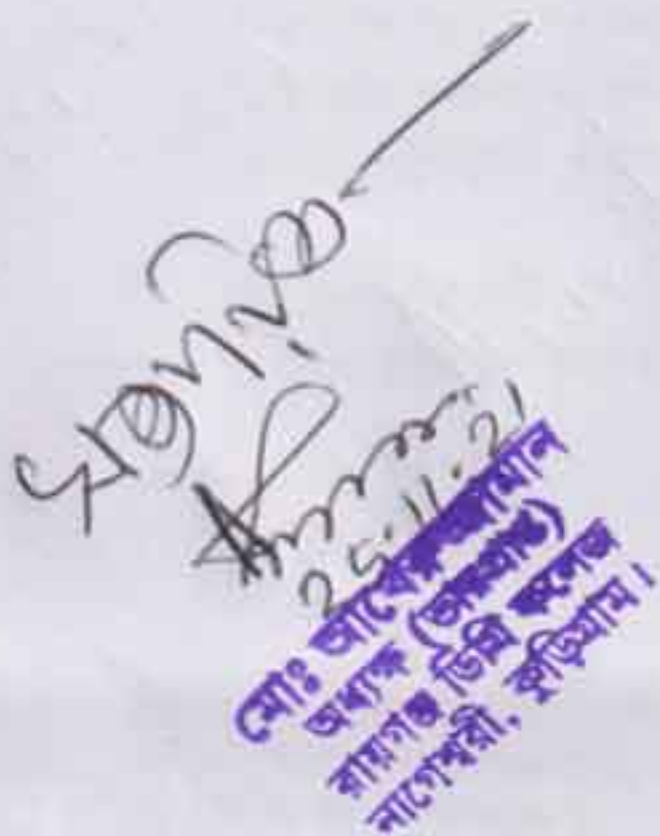 সত্যায়িত
25.11.21
মোঃ
অধ্যক্ষ (ভারপ্রাপ্ত)
রায়গঞ্জ ডিগ্রি কলেজ
নাগেশ্বরী, কুড়িগ্রাম।